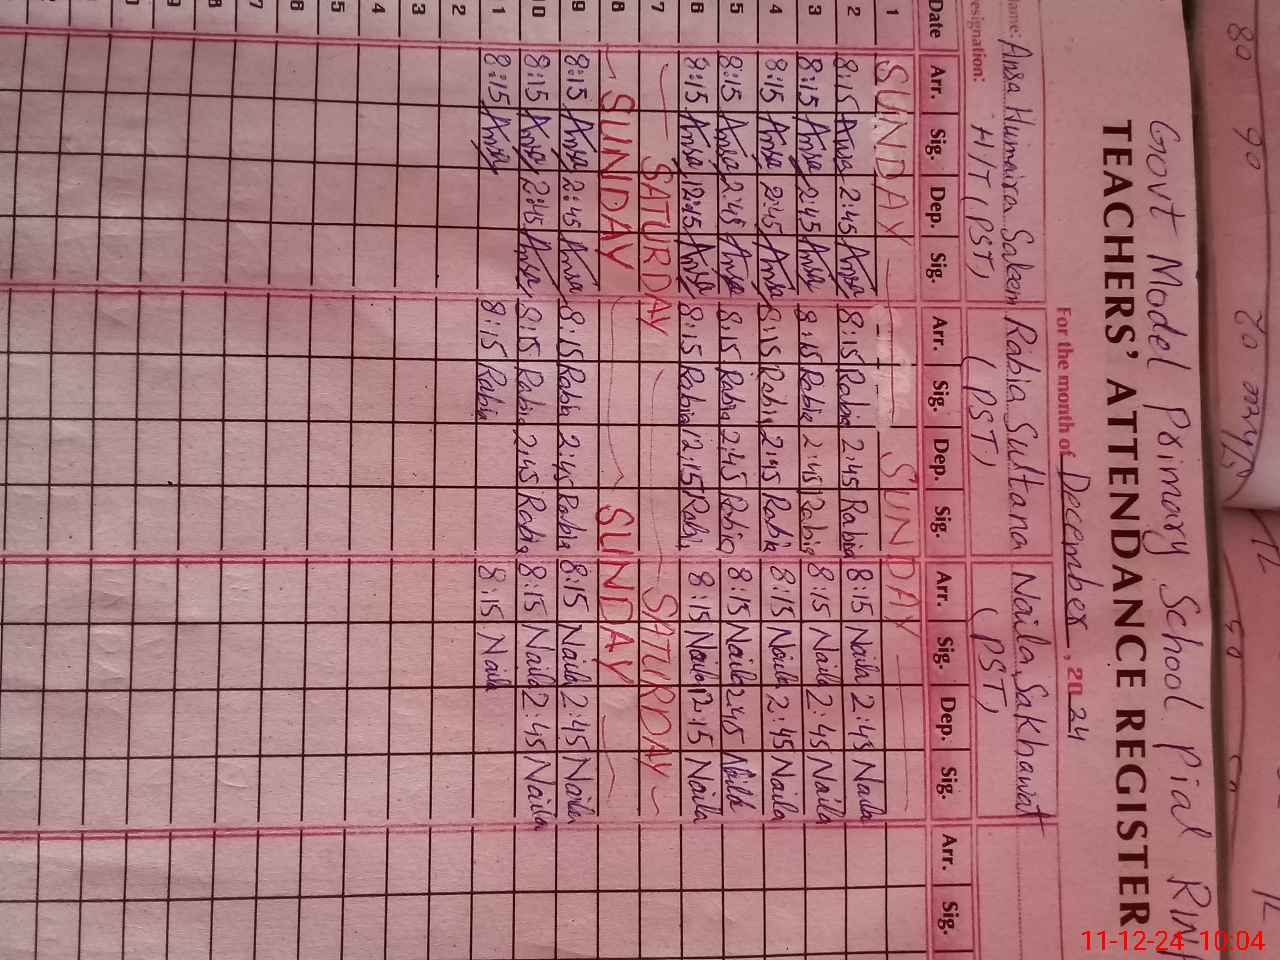 Govt Model Primary School Pial RWP
TEACHERS' ATTENDANCE REGISTER
For the month of December, 2024
Name: Ansa Humaira Saleem Rabia Sultana Naila Sakhawat
Designation: H/T (PST) (PST) (PST)
Date Arr. Sig. Dep. Sig. Arr. Sig. Dep. Sig. Arr. Sig. Dep. Sig. Arr. Sig.
1 SUNDAY SUNDAY
2 8:15 Ansa 2:45 Ansa 8:15 Rabia 2:45 Rabia 8:15 Naila 2:45 Naila
3 8:15 Ansa 2:45 Ansa 8:15 Rabia 2:45 Rabia 8:15 Naila 2:45 Naila
4 8:15 Ansa 2:45 Ansa 8:15 Rabia 2:45 Rabia 8:15 Naila 2:45 Naila
5 8:15 Ansa 2:45 Ansa 8:15 Rabia 2:45 Rabia 8:15 Naila 2:45 Naila
6 8:15 Ansa 12:15 Ansa 8:15 Rabia 12:15 Rabia 8:15 Naila 12:15 Naila
7 SATURDAY SATURDAY
8 SUNDAY SUNDAY
9 8:15 Ansa 2:45 Ansa 8:15 Rabia 2:45 Rabia 8:15 Naila 2:45 Naila
10 8:15 Ansa 2:45 Ansa 8:15 Rabia 2:45 Rabia 8:15 Naila 2:45 Naila
1 8:15 Ansa 8:15 Rabia 8:15 Naila
2
3
4
5
6
7
8
9
11-12-24 10:04